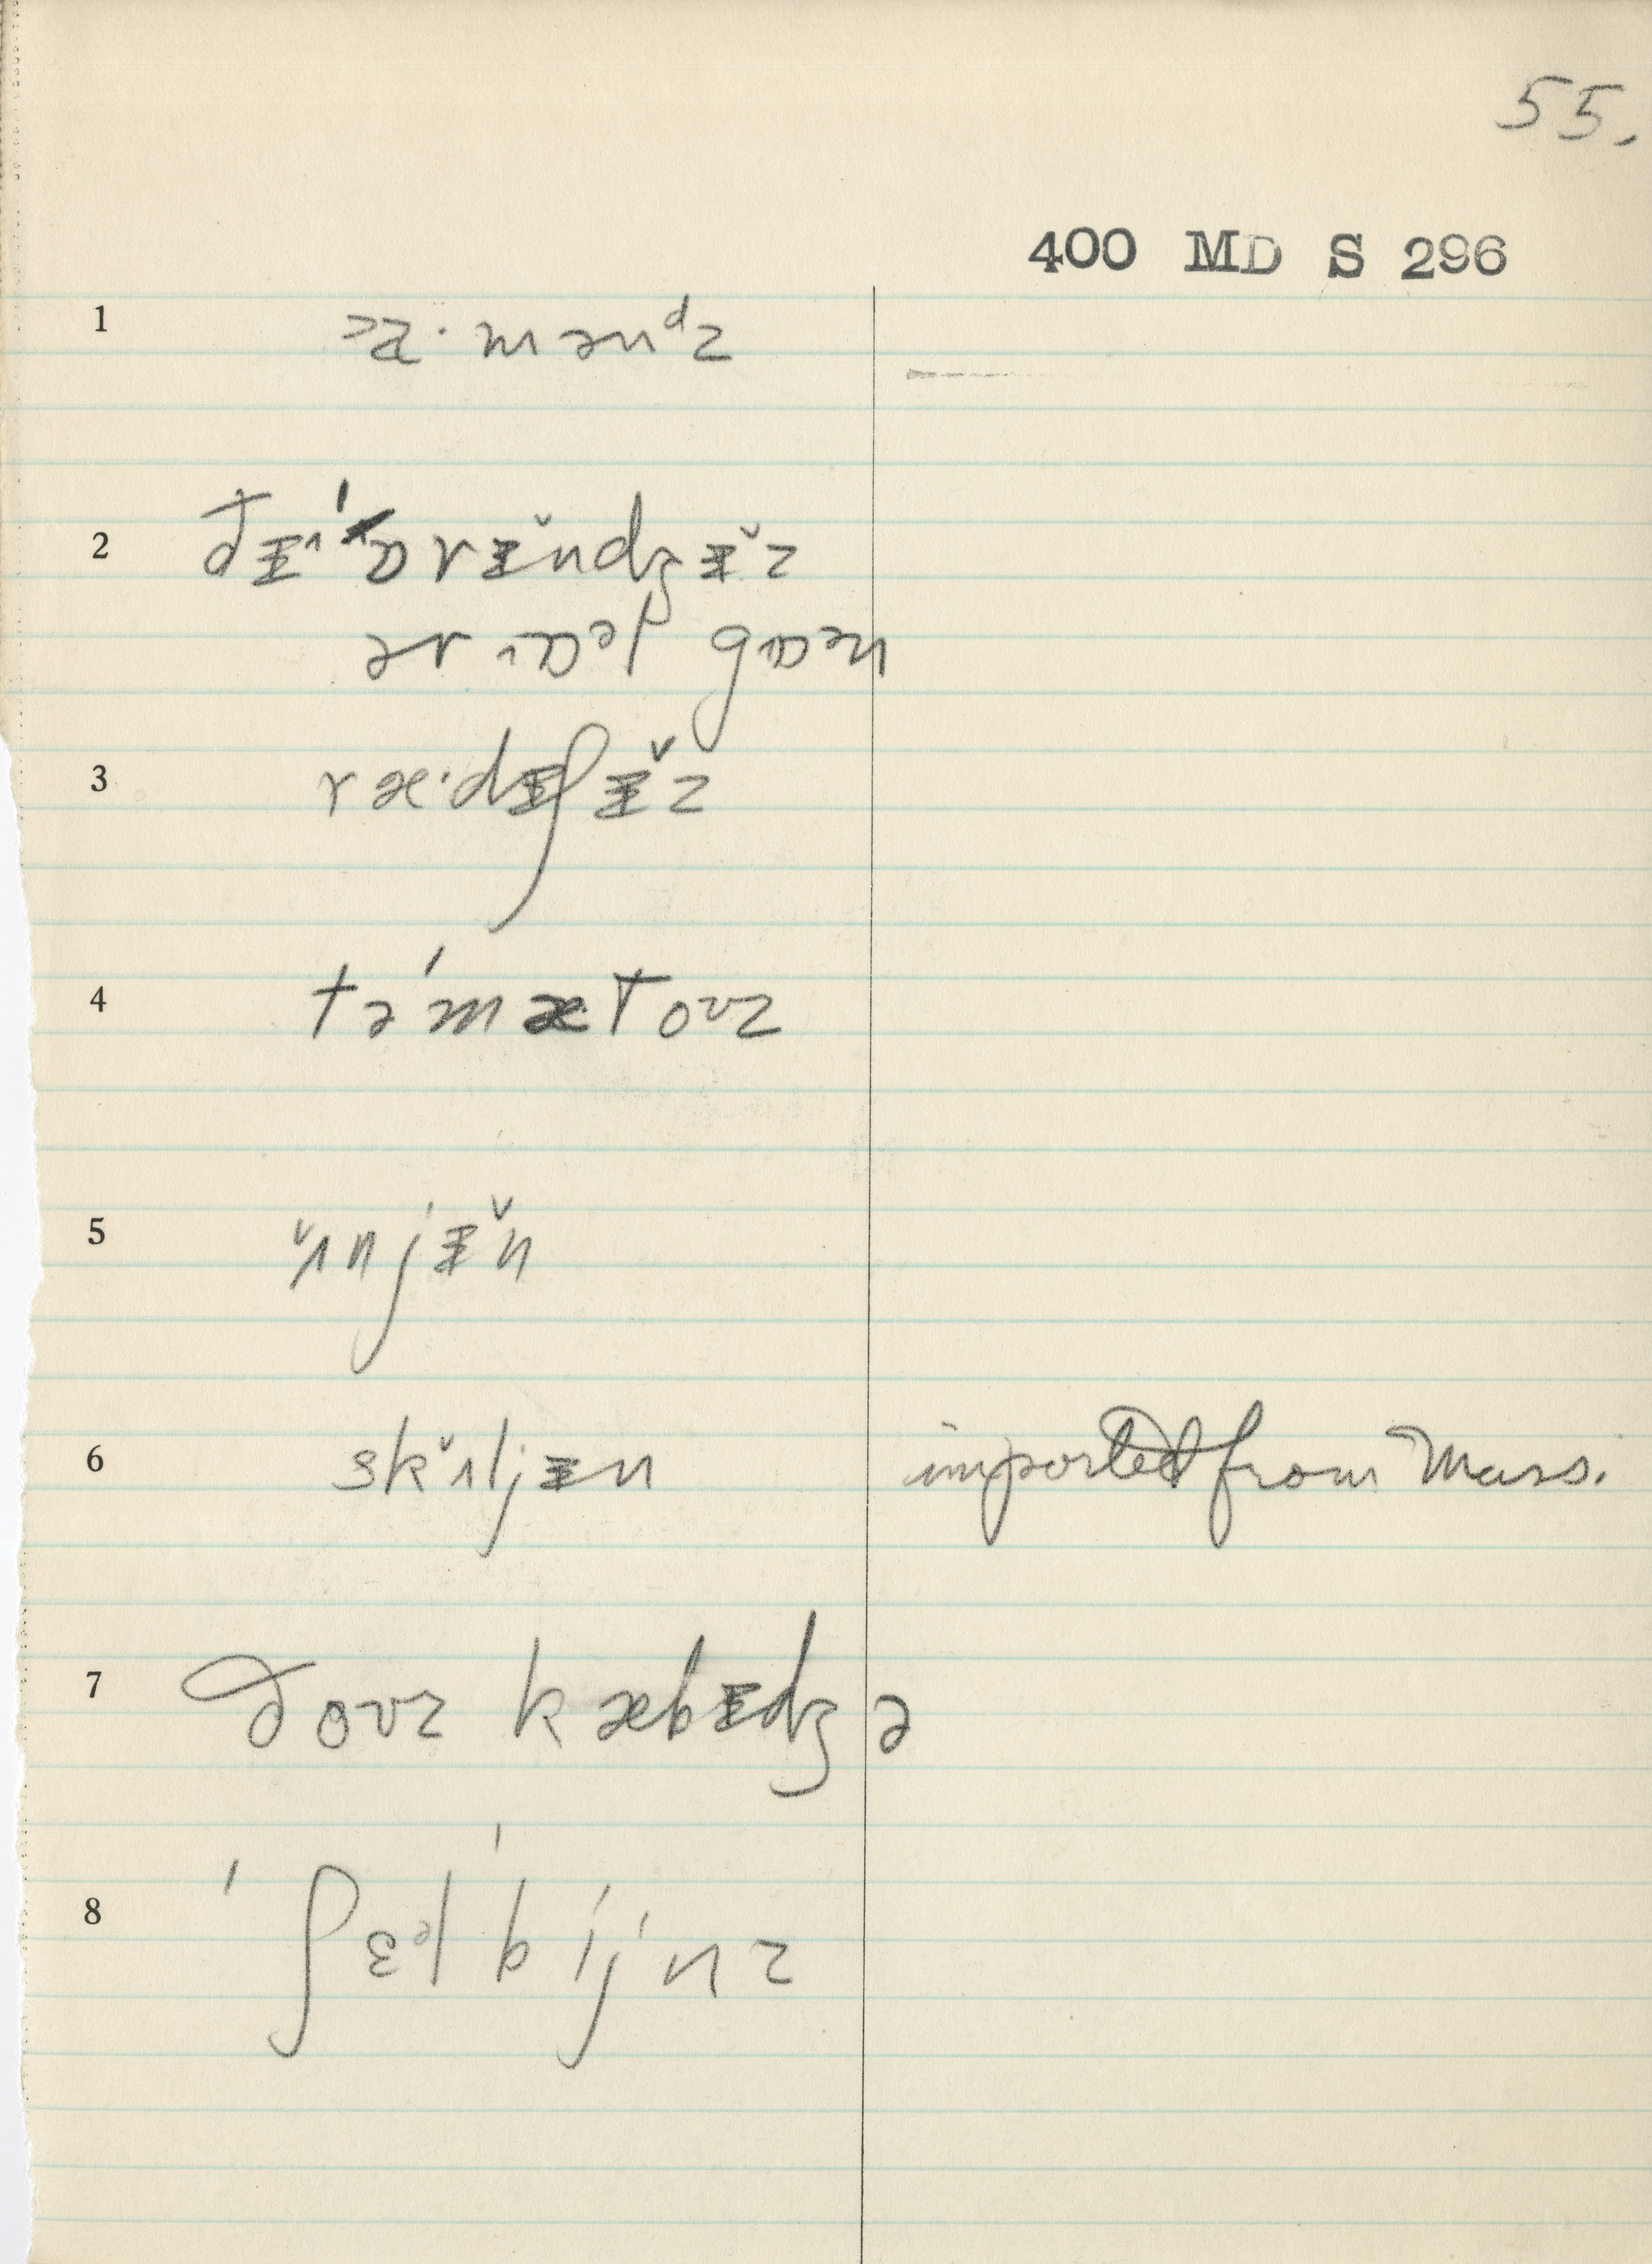 55.
400 MD S 296
1 >ɑ·mənᵈz
2 ðɨ^ˈɒrɨ̆ndʒɨ̆z
ər ˄ɒᵊl gɒᵊn
3 ræ·dɨʃɨ̆z
4 tə́mætoʊz
5 ˇʌnjɨ̆n
6 skˇʌljɨn imported from Mass.
7 ðoʊz kæbɨdʒə
8 ˈʃɛᵊlˈbijnz